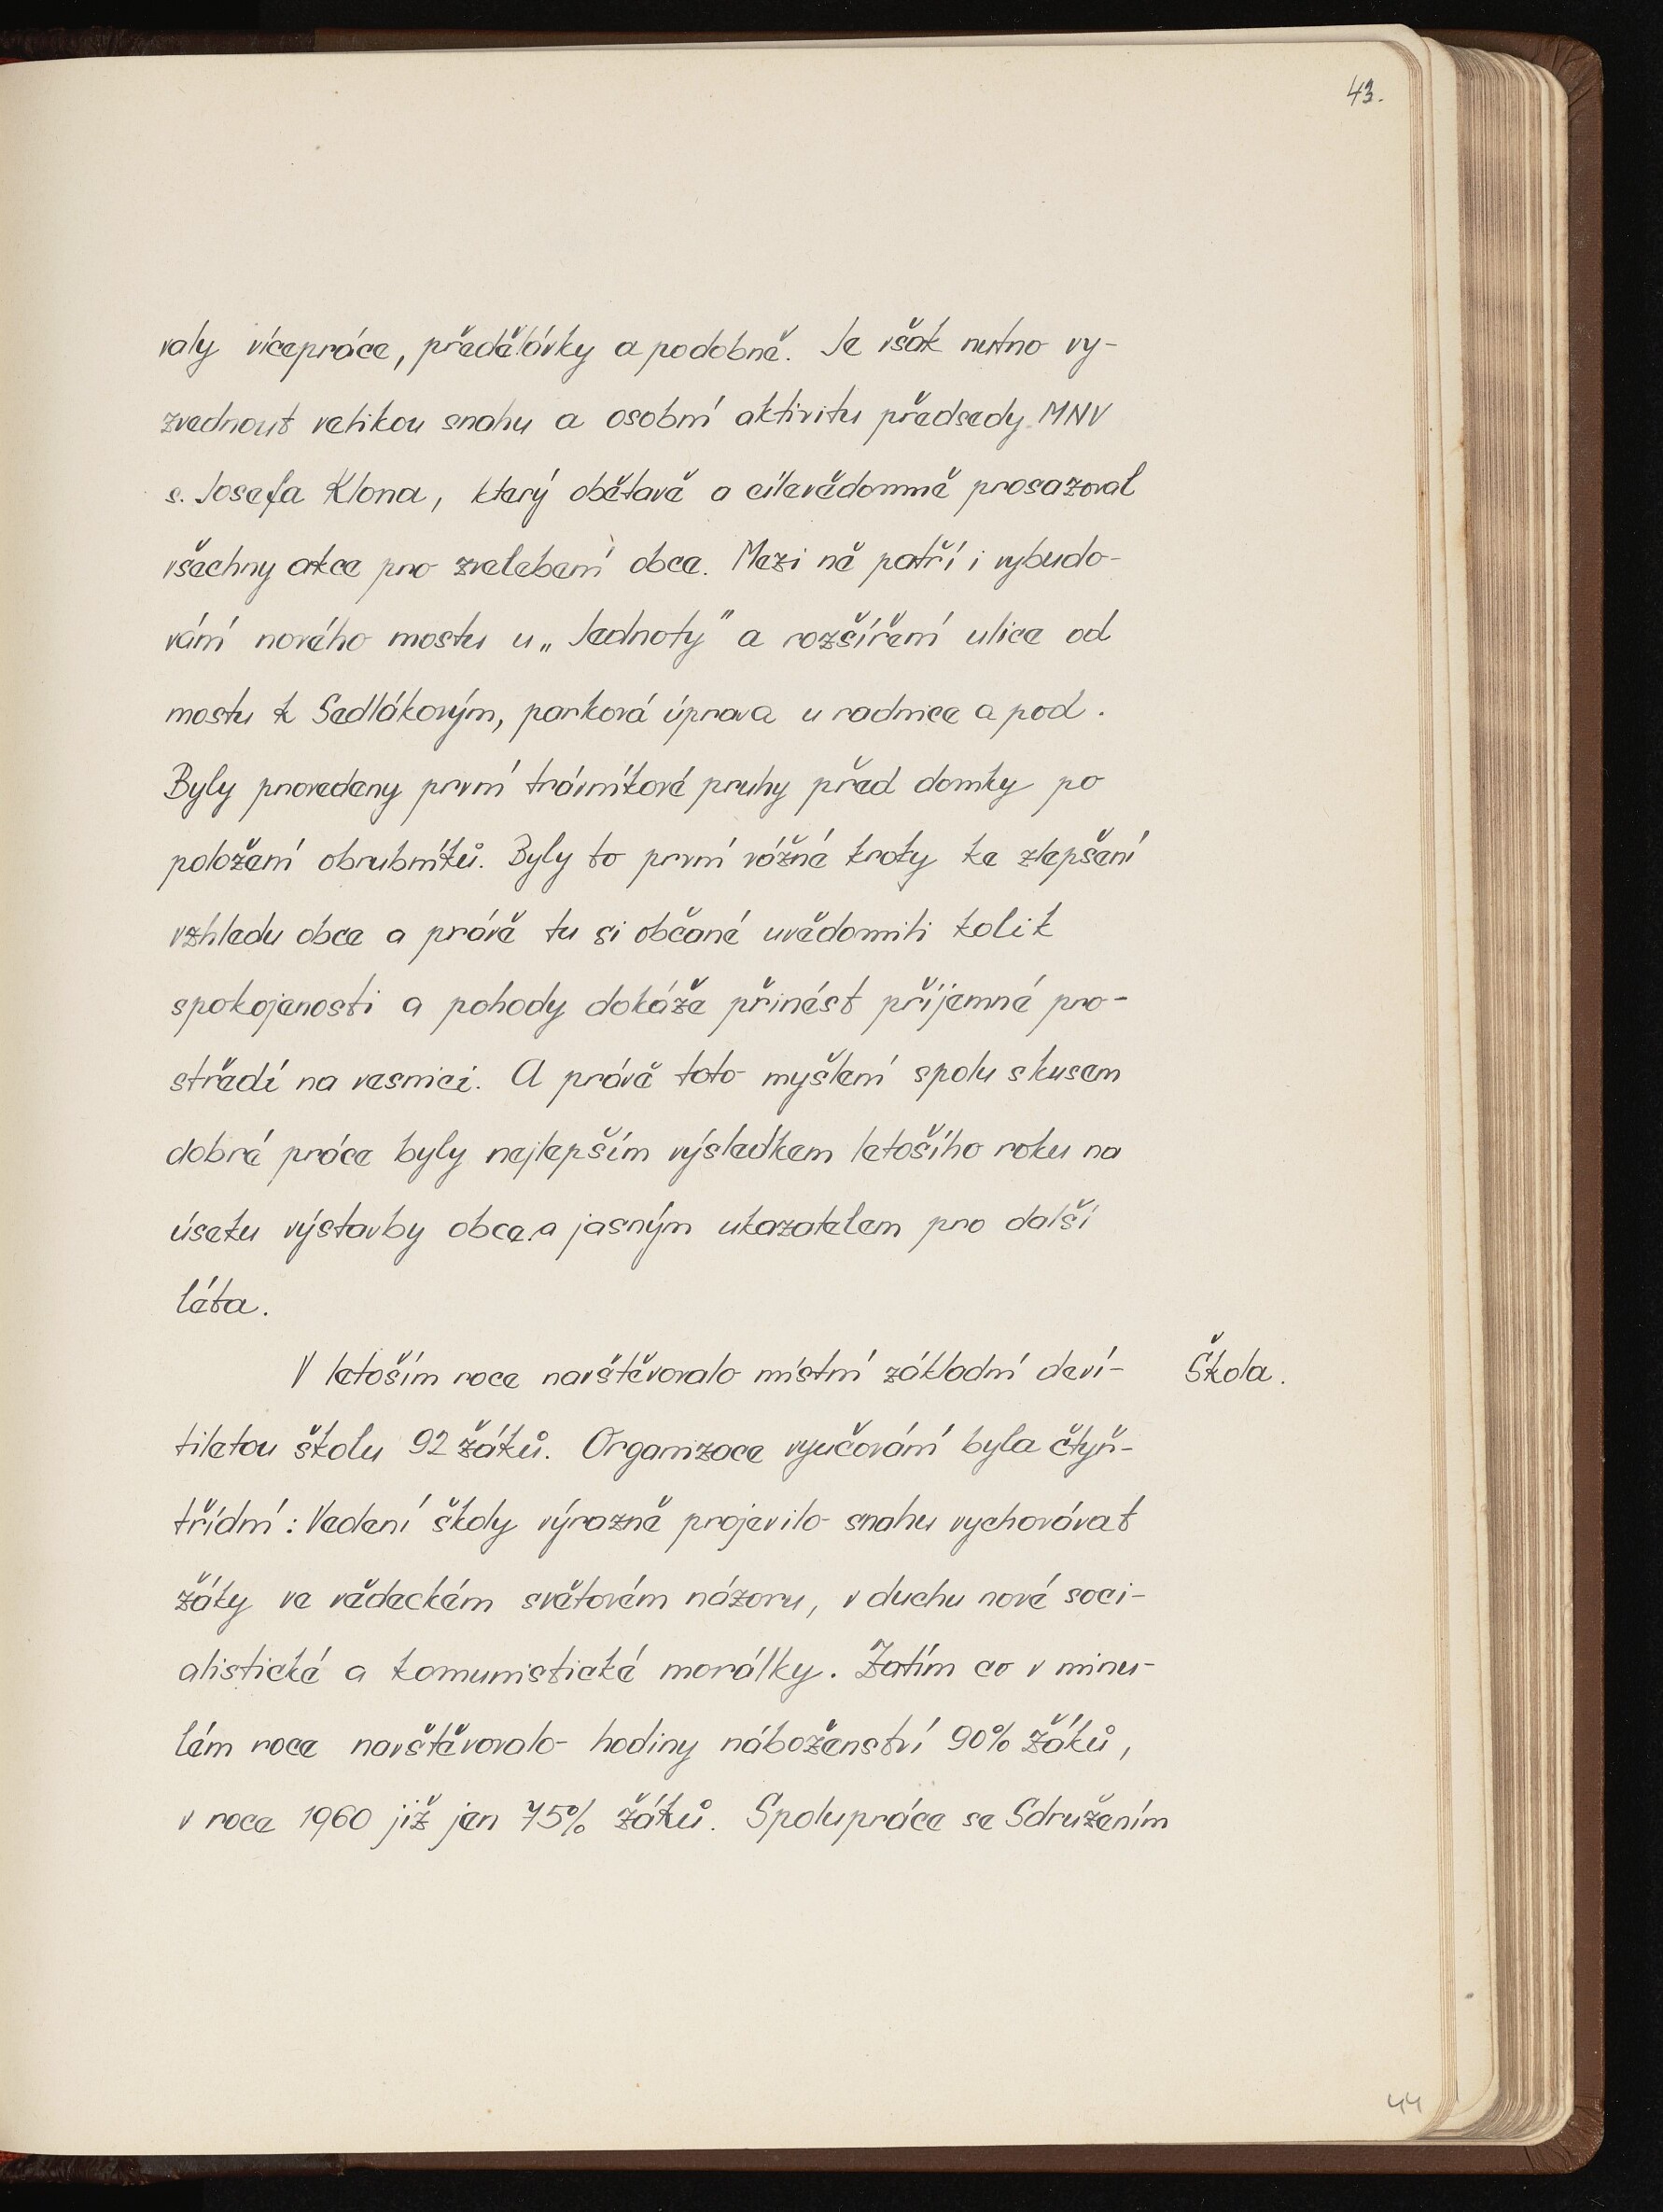 43.
valy vícepráce, předělávky a podobně. Je však nutno vy-
zvednout velikou snahu a osobní aktivitu předsedy MNV
s. Josefa Klona, který obětavě a cílevědomně prosazoval
všechny akce pro zvelebení obce. Mezi ně patří i vybudo-
vání nového mostu u „Jednoty" a rozšíření ulice od
mostu k Sedlákovým, parková úprava u radnice a pod.
Byly provedeny první trávníkové pruhy před domky po
položení obrubníků. Byly to první vážné kroky ke zlepšení
vzhledu obce a právě tu si občané uvědomili kolik
spokojenosti a pohody dokáže přinést příjemné pro-
středí na vesnici. A právě toto myšlení spolu s kusem
dobré práce byly nejlepším výsledkem letošího roku na
úseku výstavby obce a jasným ukazatelem pro další
léta.
V letoším roce navštěvovalo místní základní deví- Škola.
tiletou školu 92 žáků. Organizace vyučování byla čtyř-
třídní: Vedení školy výrazně projevilo snahu vychovávat
žáky ve vědeckém světovém názoru, v duchu nové soci-
alistické a komunistické morálky. Zatím co v minu-
lém roce navštěvovalo hodiny náboženství 90% žáků,
v roce 1960 již jen 75% žáků. Spolupráce se Sdružením
44